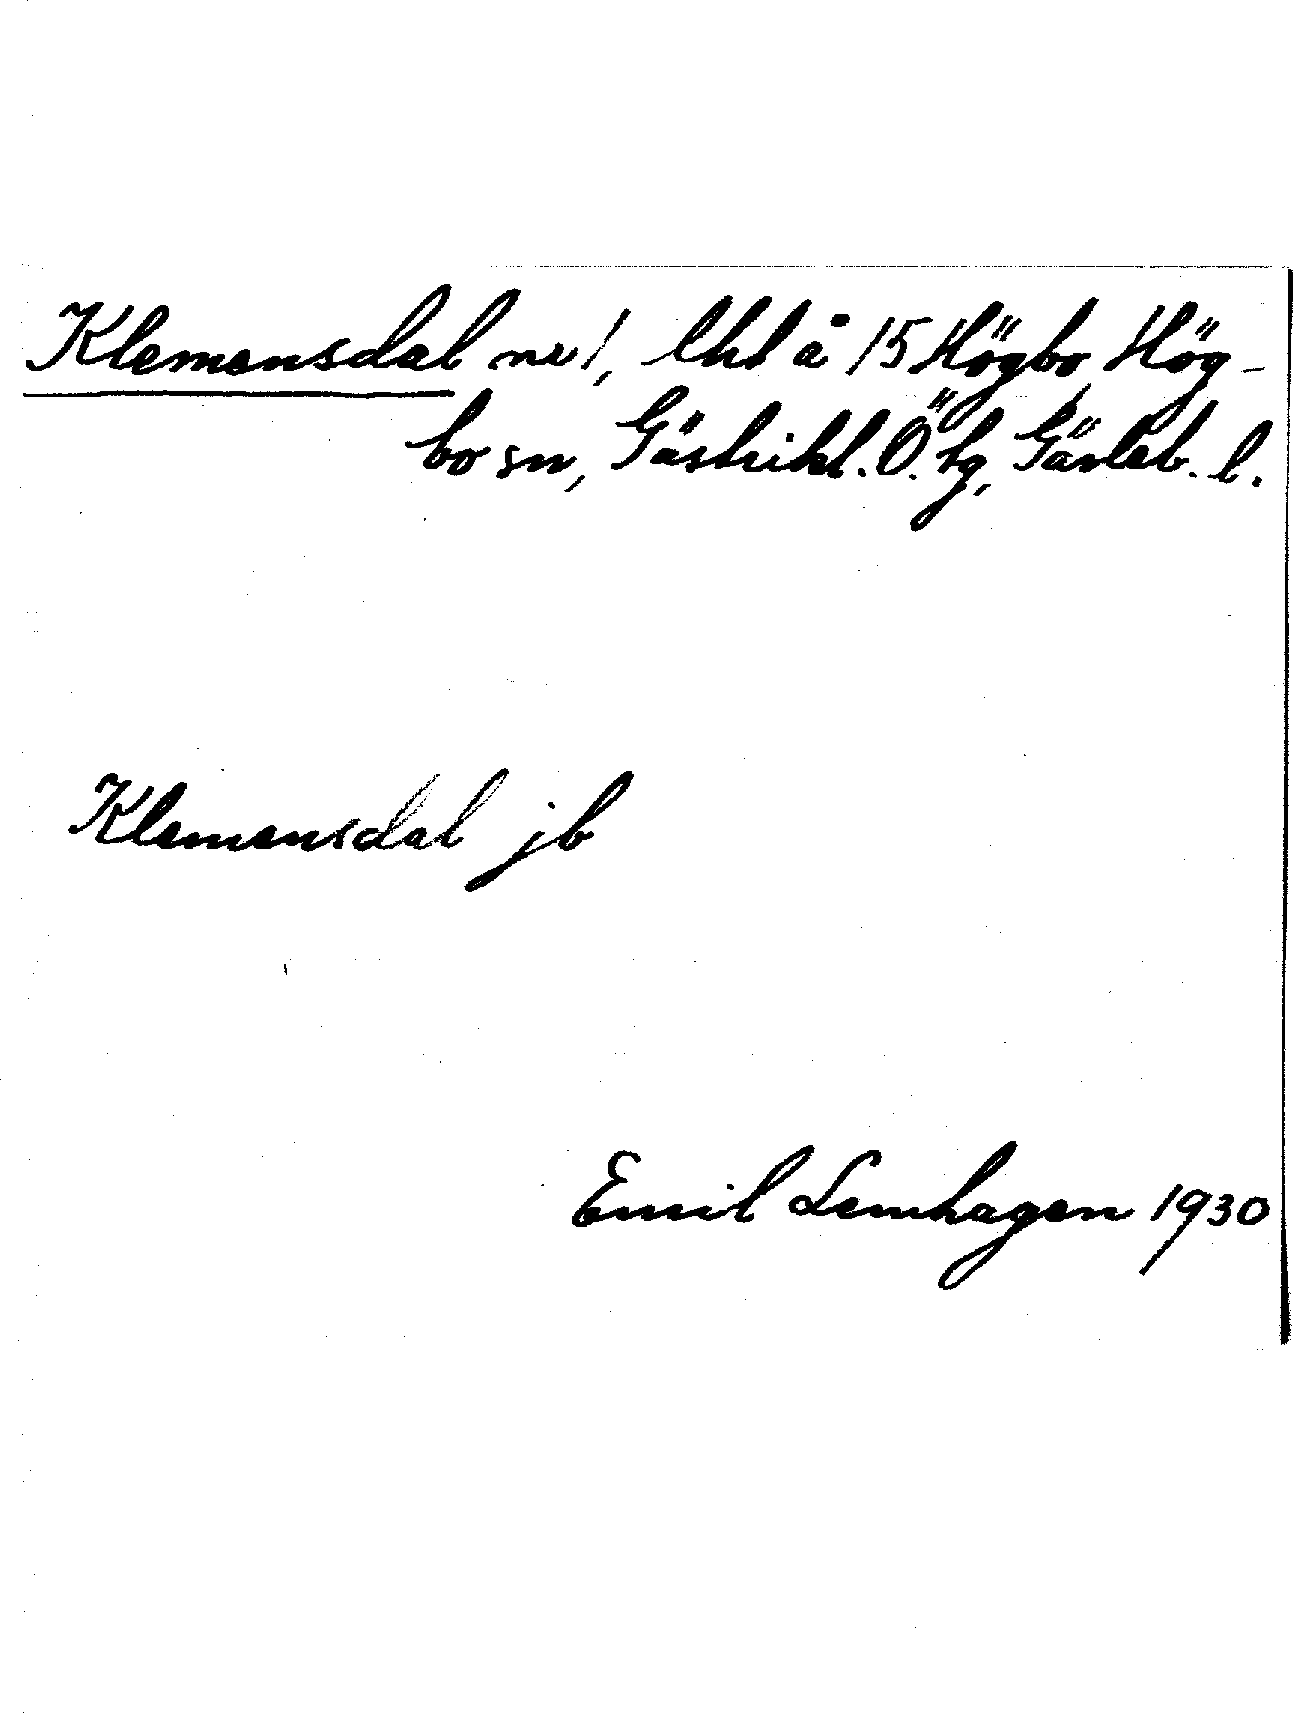 Klemensdal nr 1, lht å 15 Högbo, Hög-
bo sn, Gästrikl. Ö. tg, Gävleb. l.
Klemensdal jb
Emil Lemhagen 1930